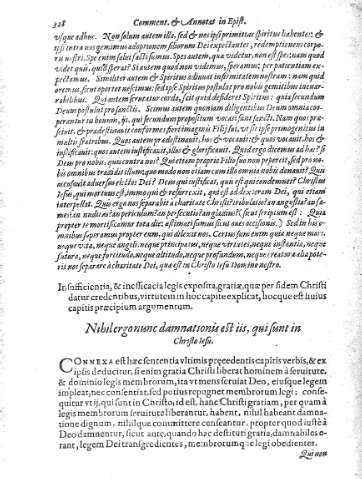 328 Comment. & Annotat in Epist.
vsque adhuc. Non solum autem illa, sed & nos ipsi primitias spiritus habentes: &
ipsi intra nos gemimus adoptionem filiorum Dei expectantes, redemptionem corpo-
ris nostri. Spe enim salui facti sumus. Spes autem, quæ videtur, non est spes: nam quod
videt quis, quid sperat? Si autem quod non videmus, speramus; per patientiam ex-
pectamus. Similiter autem & Spiritus adiuuat infirmitatem nostram: nam quid
orem us, sicut oportet nescimus: sed ipse Spiritus postulat pro nobis gemitibus inenar-
rabilibus. Qui autem scrutatur corda, scit quid desideret Spiritus: quia secundum
Deum postulat pro sanctis. Scimus autem quoniam diligentibus Deum omnia coo-
perantur in bonum, ijs, qui secundum propositum vocati sunt sancti. Nam quos præ-
sciuit, & prædestinauit conformes fieri imaginis Filij sui, vt sit ipse primogenitus in
multis fratribus. Quos autem prædestinauit, hos & vocauit: & quos vocauit, hos &
iustificauit: quos autem iustificauit, illos & glorificauit. Quid ergo dicemus ad hæc? si
Deus pro nobis, quis contra nos? Qui etiam proprio Filio suo non pepercit, sed pro no-
bis omnibus tradidit illum, quomodo non etiam cum illo omnia nobis donauit? Quis
accusabit aduersus electos Dei? Deus qui iustificat, quis est qui condemnet? Christus
Iesus, qui mortuus est, immo qui & resurrexit, qui est ad dexteram Dei, qui etiam
interpellat. Quis ergo nos separabit à charitate Christi? tribulatio? an angustia? an fa-
mes? an nuditas? an periculum? an persecutio? an gladius? (sicut scriptum est: Quia
propter te mortificamur tota die: æstimati sumus sicut oues occisionis.) Sed in his o-
mnibus superamus propter eum, qui dilexit nos. Certus sum enim quia neque mors,
neque vita, neque angeli, neque principatus, neque virtutes, neque instantia, neque
futura, neque fortitudo, neque altitudo, neque profundum, neque creatura alia pote-
rit nos separare à charitate Dei, quæ est in Christo Iesu Domino nostro.
Insufficientia, & inefficacia legis exposita, gratiæ, quæ per fidem Christi
datur credentibus, virtutem in hoc capite explicat, hocque est huius
capitis præcipuum argumentum.
Nihil ergo nunc damnationis est iis, qui sunt in
Christo Iesu.
CONNEXA est hæc sententia vltimis præcedentis capitis verbis, & ex
ipsis deducitur. si enim gratia Christi liberat hominem à seruitute,
& dominio legis membrorum, ita vt mens seruiat Deo, eiusque legem
impleat, nec consentiat, sed potius repugnet membrorum legi: conse-
quitur vt ij, qui sunt in Christo, id est, hanc Christi gratiam, per quam à
legis membrorum seruitute liberantur, habent, nihil habeant damna-
tione dignum, nihilque committere censeantur, propter quod iustè à
Deo damnentur, sicut ante, quando hac destituti gratia, damnabiles e-
rant, legem Dei transgredientes, membrorumque legi obedientes.
Qui non